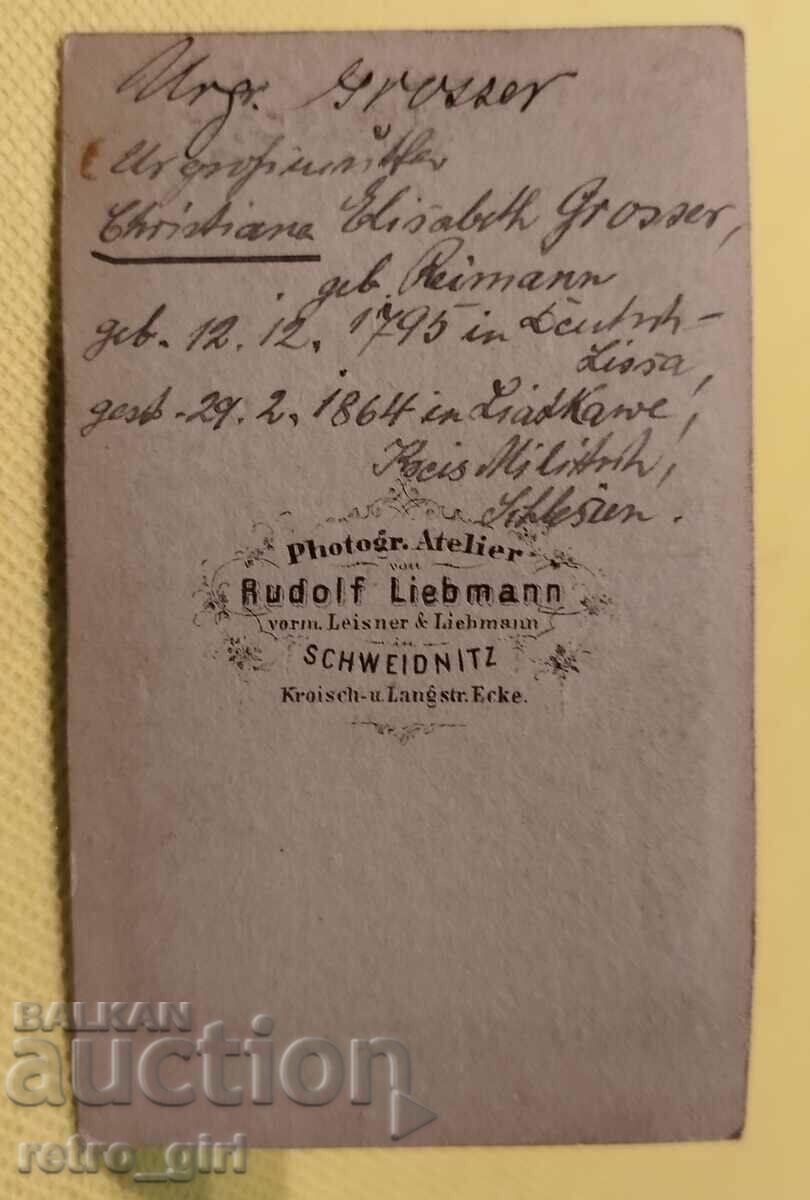 Urgr. Grosser
Urgroßmutter
Christiane Elisabeth Grosser,
geb. Reimann
geb. 12.12. 1795 in Deutsch-
Lissa,
gest. 29.2. 1864 in Liatkawe,
Kreis Militsch,
Schlesien.
Photogr. Atelier
von
Rudolf Liebmann
vorm. Leisner & Liebmann
in
SCHWEIDNITZ
Kroisch-u. Langstr. Ecke.
BALKAN
auction
retro_girl